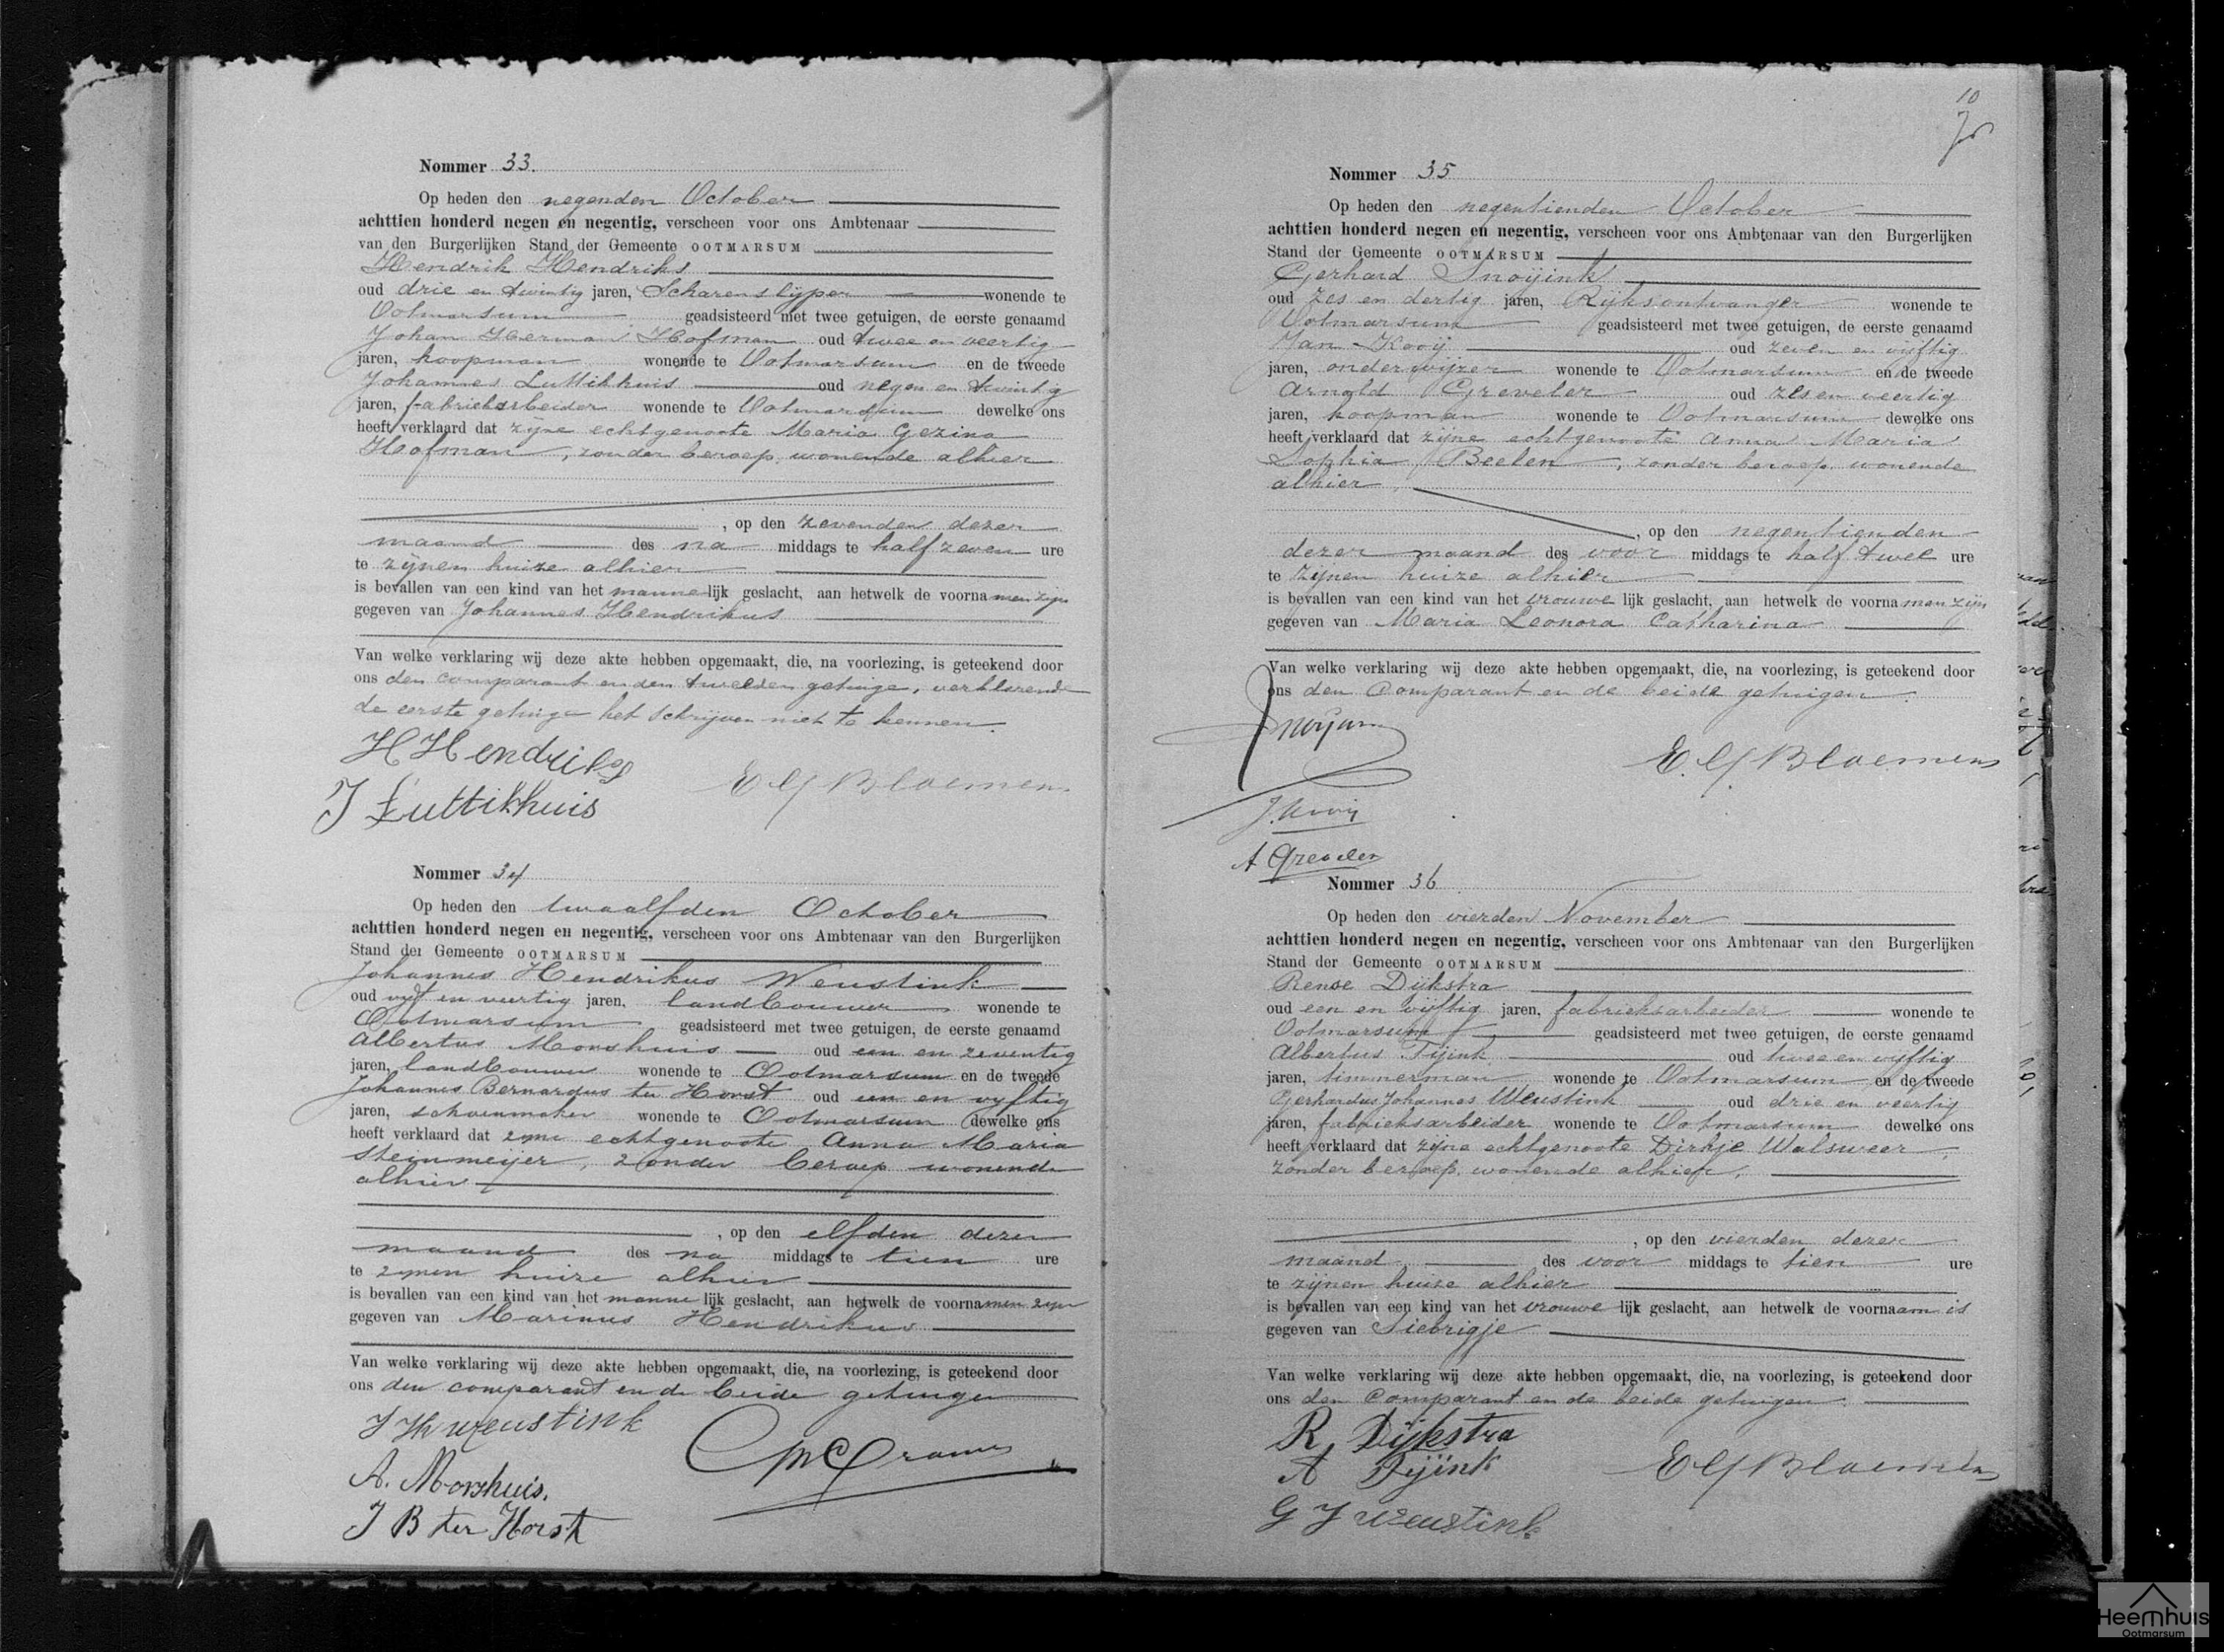 Nommer 33.
Op heden den negenden October
achttien honderd negen en negentig, verscheen voor ons Ambtenaar
van den Burgerlijken Stand der Gemeente OOTMARSUM
Hendrik Hendriks
oud drie en twintig jaren, Scharenslijper wonende te
Ootmarsum geadsisteerd met twee getuigen, de eerste genaamd
Johan Herman Hofman oud twee en veertig
jaren, koopman wonende te Ootmarsum en de tweede
Johannes Luttikhuis oud negen en twintig
jaren, fabrieksarbeider wonende te Ootmarsum dewelke ons
heeft verklaard dat zijne echtgenoote Maria Gezina
Hofman, zonder beroep, wonende alhier
, op den zevenden dezer
maand des na middags te half zeven ure
te zijnen huize alhier
is bevallen van een kind van het mannelijk geslacht, aan hetwelk de voornamen zijn
gegeven van Johannes Hendrikus
Van welke verklaring wij deze akte hebben opgemaakt, die, na voorlezing, is geteekend door
ons den comparant en den tweeden getuige, verklarende
de eerste getuige het schrijven niet te kennen.
H Hendriks
J Luttikhuis
E G Bloemen
Nommer 34
Op heden den twaalfden October
achttien honderd negen en negentig, verscheen voor ons Ambtenaar van den Burgerlijken
Stand der Gemeente OOTMARSUM
Johannes Hendrikus Weustink
oud vijf en veertig jaren, landbouwer wonende te
Ootmarsum geadsisteerd met twee getuigen, de eerste genaamd
Albertus Morshuis oud een en zeventig
jaren, landbouwer wonende te Ootmarsum en de tweede
Johannes Bernardus ter Horst oud een en vyftig
jaren, schoenmaker wonende te Ootmarsum dewelke ons
heeft verklaard dat zijne echtgenoote Anna Maria
Steinmeijer, zonder beroep wonende
alhier
, op den elfden dezer
maand des na middags te tien ure
te zijnen huize alhier
is bevallen van een kind van het mannelijk geslacht, aan hetwelk de voornamen zijn
gegeven van Marinus Hendrikus
Van welke verklaring wij deze akte hebben opgemaakt, die, na voorlezing, is geteekend door
ons den comparant en de beide getuigen
J H Weustink
A. Morshuis.
J B ter Horst
10
Nommer 35
Op heden den negentienden October
achttien honderd negen en negentig, verscheen voor ons Ambtenaar van den Burgerlijken
Stand der Gemeente OOTMARSUM
Gerhard Snoijink
oud zes en dertig jaren, Rijksontvanger wonende te
Ootmarsum geadsisteerd met twee getuigen, de eerste genaamd
Jan Kooij oud zeven en vijftig
jaren, onderwijzer wonende te Ootmarsum en de tweede
Arnold Greveler oud zes en veertig
jaren, koopman wonende te Ootmarsum dewelke ons
heeft verklaard dat zijne echtgenoote Anna Maria
Sophia Beelen, zonder beroep, wonende
alhier,
, op den negentienden
dezer maand des voor middags te half twee ure
te zijnen huize alhier
is bevallen van een kind van het vrouwelijk geslacht, aan hetwelk de voornamen zijn
gegeven van Maria Leonora Catharina
Van welke verklaring wij deze akte hebben opgemaakt, die, na voorlezing, is geteekend door
ons den Comparant en de beide getuigen.
E. G Bloemen
J. Kooij
A Greveler
Nommer 36
Op heden den vierden November
achttien honderd negen en negentig, verscheen voor ons Ambtenaar van den Burgerlijken
Stand der Gemeente OOTMARSUM
Rense Dijkstra
oud een en vijftig jaren, fabrieksarbeider wonende te
Ootmarsum geadsisteerd met twee getuigen, de eerste genaamd
Albertus Tijink oud twee en vyftig
jaren, timmerman wonende te Ootmarsum en de tweede
Gerhardus Johannes Weustink oud drie en veertig
jaren, fabrieksarbeider wonende te Ootmarsum dewelke ons
heeft verklaard dat zijne echtgenoote Dirkje Walsweer,
zonder beroep, wonende alhier,
, op den vierden dezer
maand des voor middags te tien ure
te zijnen huize alhier
is bevallen van een kind van het vrouwelijk geslacht, aan hetwelk de voornaam is
gegeven van Siebrigje
Van welke verklaring wij deze akte hebben opgemaakt, die, na voorlezing, is geteekend door
ons den Comparant en de beide getuigen.
R Dijkstra
A Tijink
E G Bloemen
G J Weustink
Heemhuis
Ootmarsum